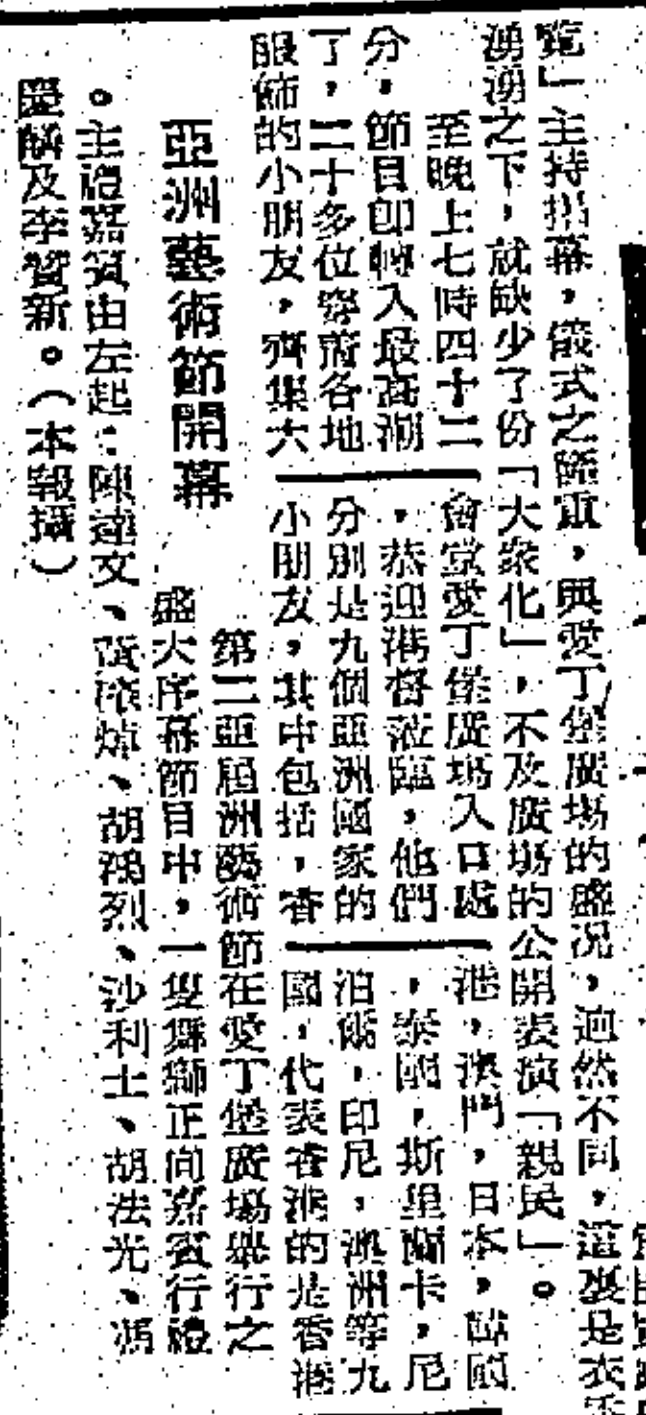 覽」主持揭幕，儀式之隆重，與愛丁堡廣場的盛况，迥然不同，這裏是衣
湧湧之下，就缺少了份「大衆化」，不及廣場的公開表演「親民」。
至晚上七時四十二
分，節目即轉入最高潮
了，二十多位穿着各地
服飾的小朋友，齊集大
會堂愛丁堡廣場入口處
，恭迎港督蒞臨，他們
分別是九個亞洲國家的
小朋友，其中包括，香
港，澳門，日本，韓國
，泰國，斯里蘭卡，尼
泊爾，印尼，澳洲等九
國，代表香港的是香港
亞洲藝術節開幕
第二亞屆洲藝術節在愛丁堡廣場舉行之
盛大序幕節目中，一隻舞獅正向嘉賓行禮
。主禮嘉賓由左起：陳達文、焯、胡鴻烈、沙利士、胡法光、馮
慶麟及李新。（本報攝）